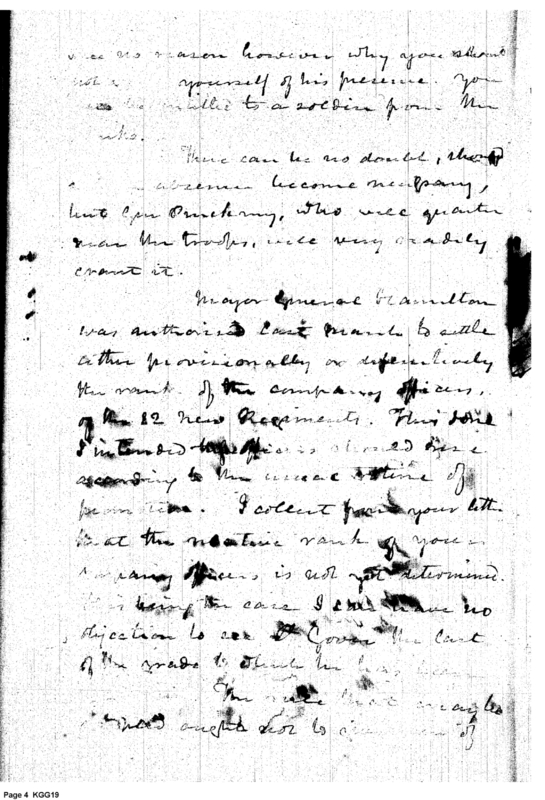 see no reason however why you should
not yourself of his presence. You
to a soldier from the
ranks.
There can be no doubt, should
absence become necessary,
but Gen Pinckney, who will quarter
near the troops, will very readily
grant it.
Major General Hamilton
was authorised last March to settle
either provisionally or definitively
the rank of the company officers,
of the 12 new Regiments. This done
I intended the officers should rise
according to the usual routine of
promotion. I collect from your letter
that the relative rank of your
company officers is not yet determined.
This being the case I can have no
objection to see Lt Gover the last
of the grade to which he has been
The rule that may be
ought not to of
Page 4 KGG19